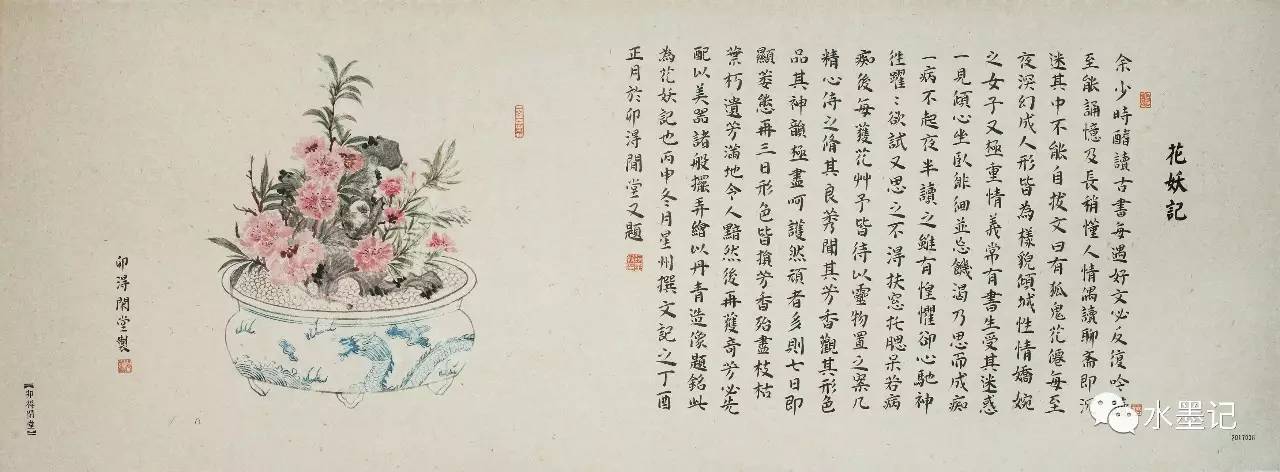 花妖記
余少時醅讀古書每遇好文必反復吟
至能誦憶及長稍懂人情偶讀聊齋即沉
迷其中不能自拔文曰有狐鬼花僊每至
夜深幻成人形皆為樣貌傾城性情嬌婉
之女子又極重情義常有書生受其迷惑
一見傾心坐臥徘徊並忘饑渴乃思而成痴
一病不起夜半讀之雖有惶懼卻心馳神
往躍〻欲試又思之不得扶窓托腮呆若病
痴後每獲花艸予皆待以靈物置之案几
精心侍之脩其良莠聞其芳香觀其形色
品其神韻極盡呵護然頑者多則七日即
顯萎態再三日形色皆損芳香殆盡枝枯
葉朽遺芳滿地令人黯然後再獲奇芳必先
配以美器諸般擺弄繪以丹青造像題銘此
為花妖記也丙申冬月星州撰文記之丁酉
正月於卯得閒堂又題
卯得閑堂製
【卯得閒堂】
水墨记
2017036